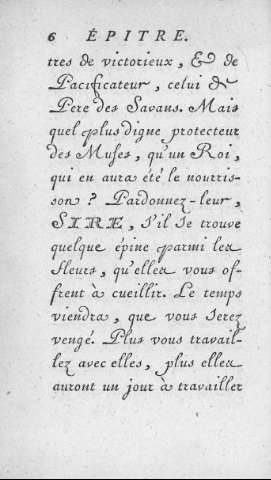 6 ÉPITRE.
tres de victorieux, & de
Pacificateur, celui de
Pere des Savans. Mais
quel plus digne protecteur
des Muses, qu'un Roi,
qui en aura été le nourris-
son ? Pardonnez-leur,
SIRE, s'il se trouve
quelque épine parmi les
fleurs, qu'elles vous of-
frent à cueillir. Le temps
viendra, que vous serez
vengé. Plus vous travail-
lez avec elles, plus elles
auront un jour à travailler